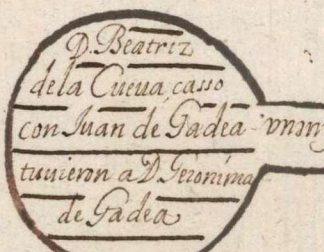 D. Beatriz
dela Cueua casso
con Iuan de Gadea
tuuieron a D. Geronima
de Gadea